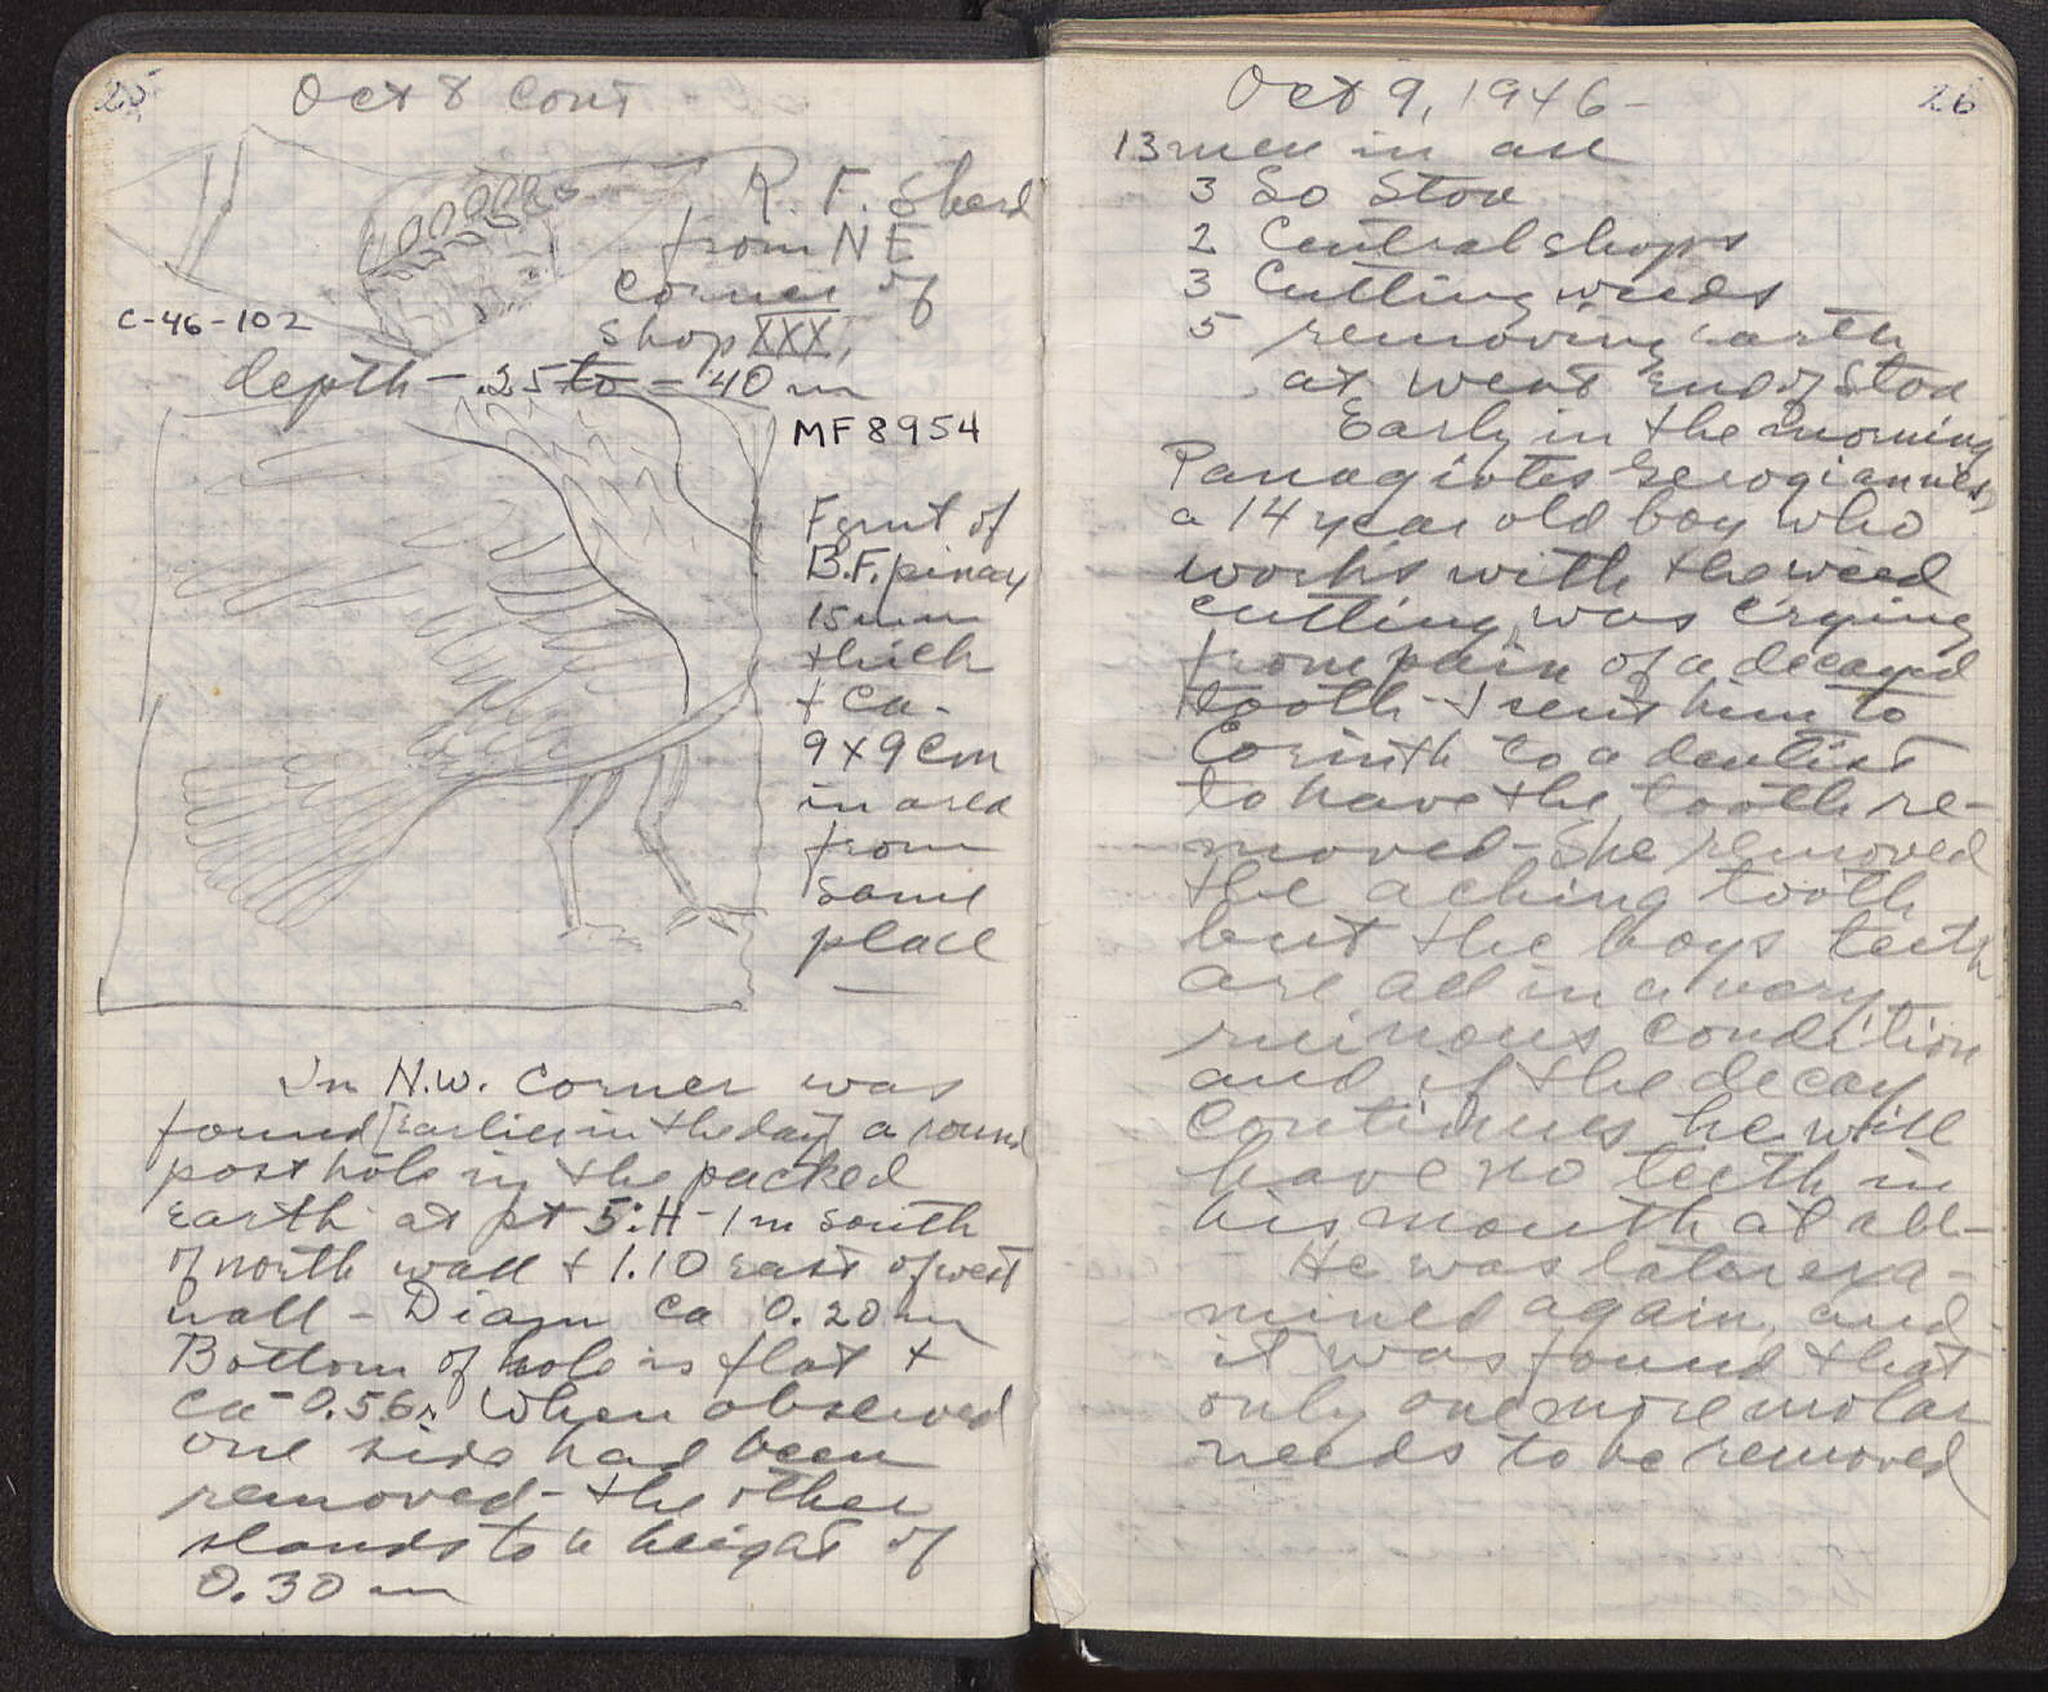 25
Oct 8 Cont
R. F. Sherd
from NE
Corner of
Shop XXX,
C-46-102
depth - .25 to = 40 m
MF 8954
Fgmt of
B.F. pinax
15 mm
thick
+ ca.
9 x 9 cm
in area
from
same
place
In N.W. Corner was
found [earlier in the day] a round
post hole in the packed
earth at pt 5:H - 1 m south
of north wall + 1.10 east of west
wall - Diam ca 0.20 m
Bottom of hole is flat +
ca - 0.56. When observed
one side had been
removed - the other
stands to a height of
0.30 m
26
Oct 9, 1946 -
13 men in all
3 So Stoa
2 Central shops
3 Cutting weeds
5 removing earth
at west end of Stoa
Early in the morning
Panagiotes Gerogiannes,
a 14 year old boy who
works with the weed
cutting, was crying
from pain of a decayed
tooth - I sent him to
Corinth to a dentist
to have the tooth re-
moved - She removed
the aching tooth
but the boys teeth
are all in a very
ruinous condition
and if the decay
continues he will
have no teeth in
his mouth at all -
He was later exa-
mined again, and
it was found that
only one more molar
needs to be removed